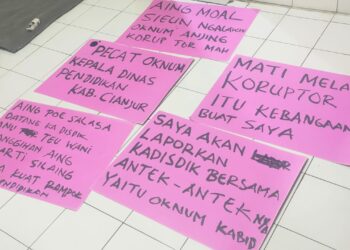 AING MOAL
SIEUN NGALAWAN
OKNUM ANJING
KORUPTOR MAH
PECAT OKNUM
KEPALA DINAS
PENDIDIKAN
KAB. CIANJUR
MATI MELA
KORUPTOR
ITU KEBANGAAN
BUAT SAYA
AING POE SALASA
DATANG KA DISDIK
TEU WANI
AING
ARTI SILAING
KUAT RAMPOK
PENDIDIKAN
SAYA AKAN
LAPORKAN
KADISDIK BERSAMA
ANTEK-ANTEK NYA
YAITU OKNUM KABID